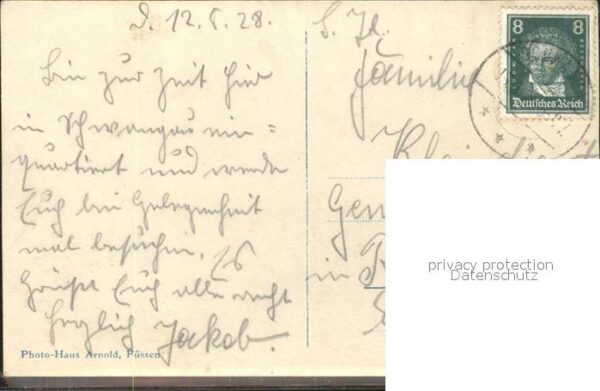 d. 12.8.28.
Bin zur Zeit hier
in Schwangau ein=
quartiert und werde
Euch bei Gelegenheit
mal besuchen. Es
Grüßt Euch alle recht
herzlich Jakob.
Photo-Haus Arnold, Füssen
Familie
in
8 8
LUDWIG VAN BEETHOVEN
Deutsches Reich
privacy protection
Datenschutz